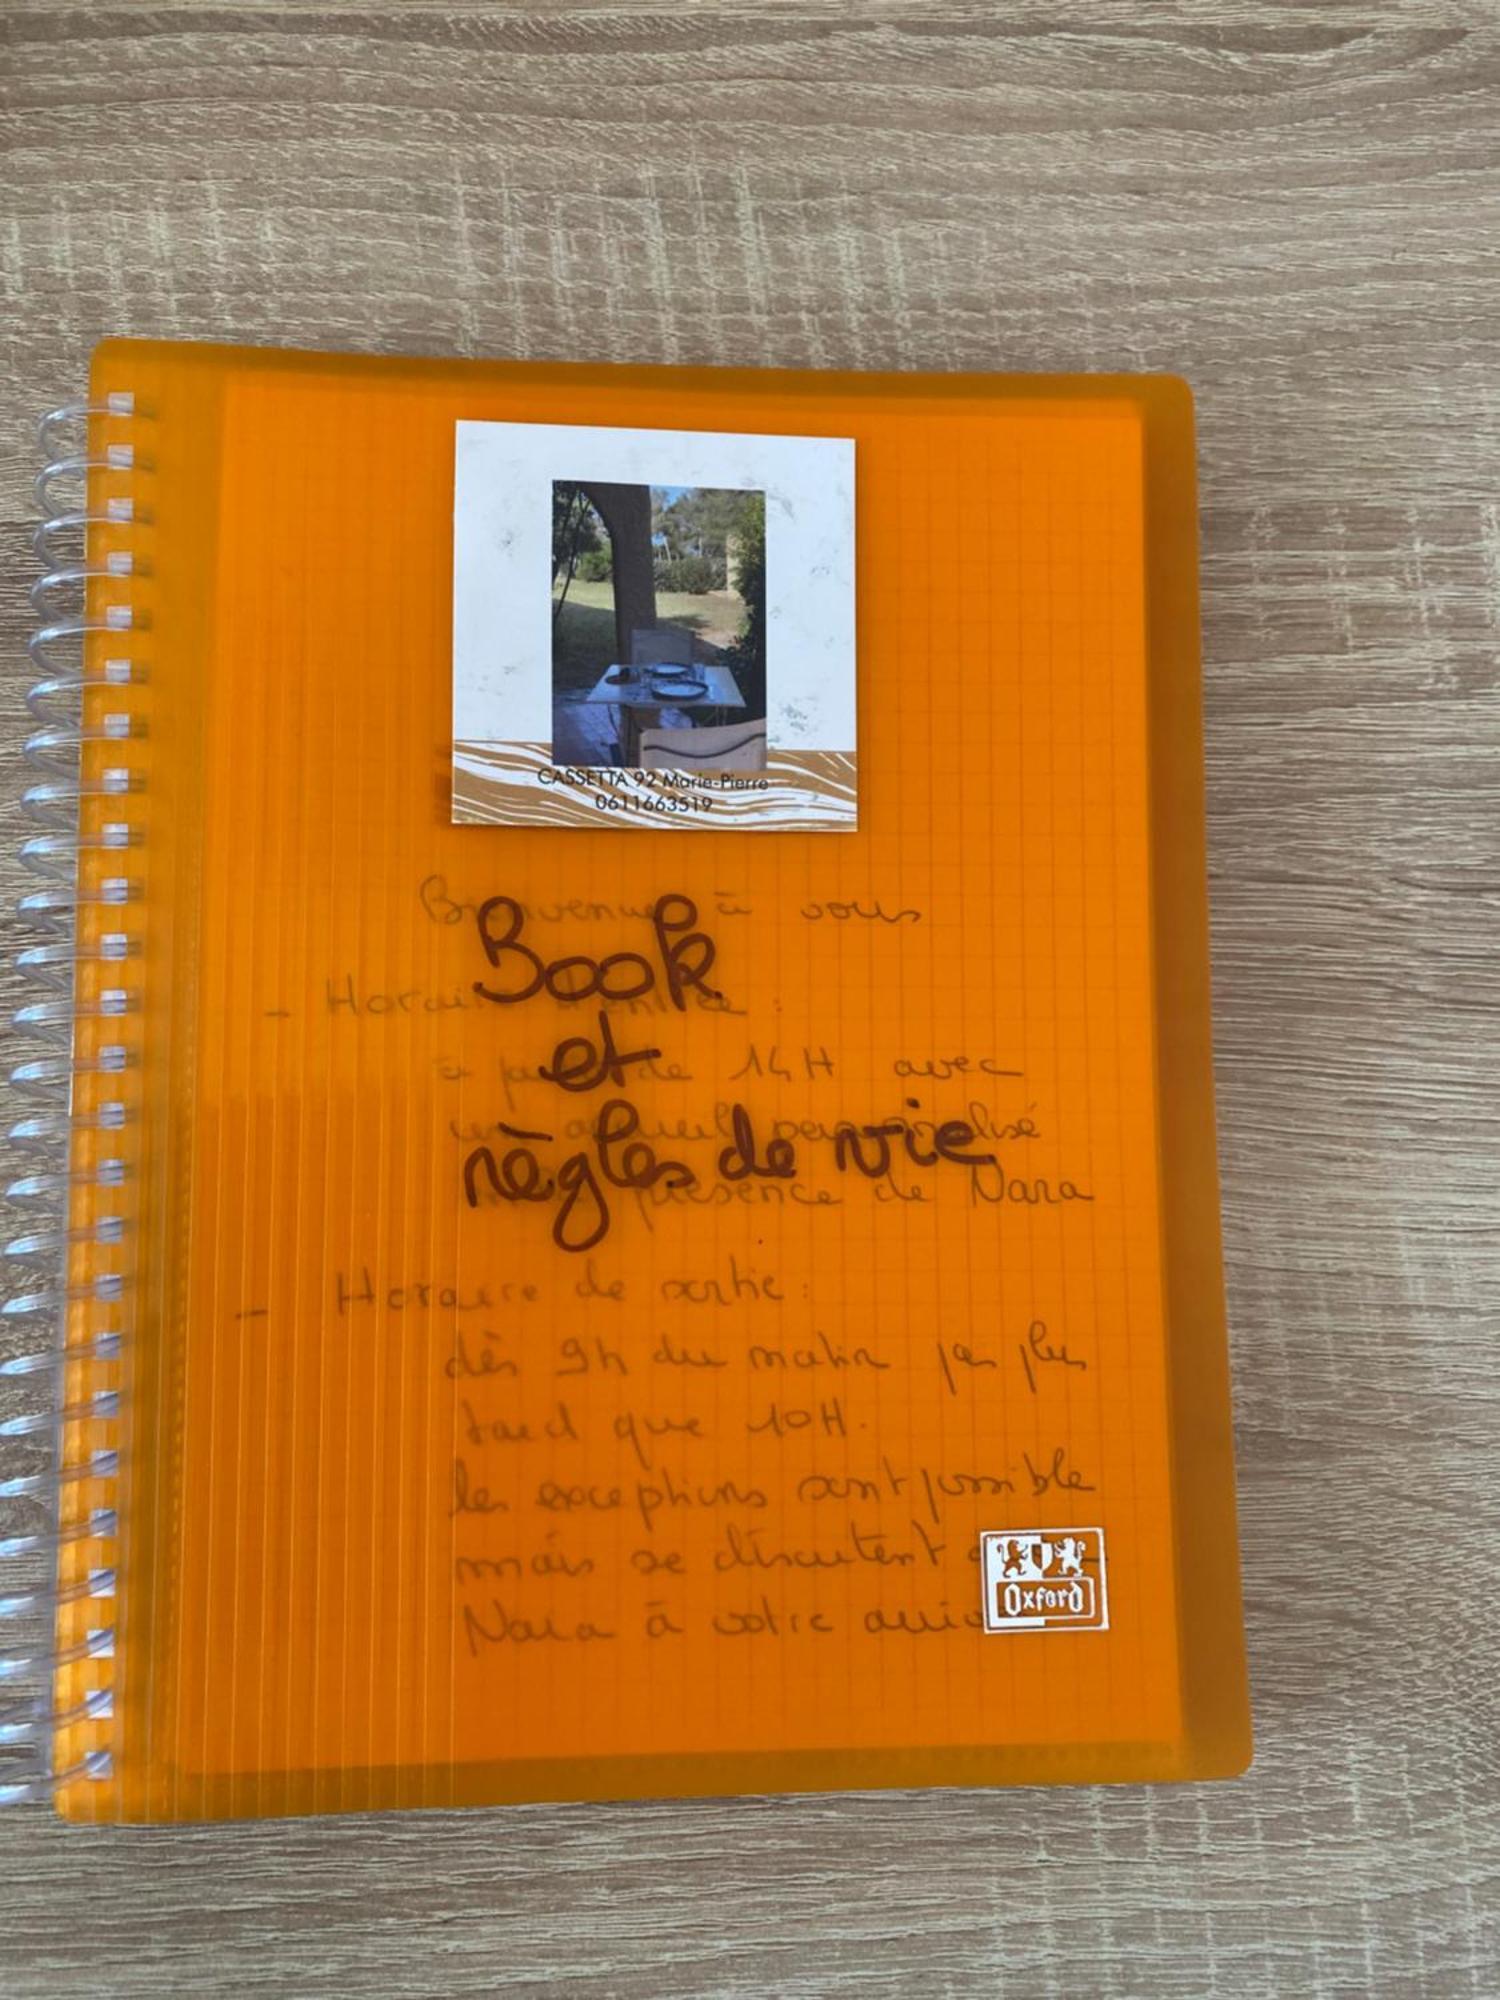 CASSETTA 92 Marie-Pierre
0611663519
Bienvenue à vous
Book
- Horaire d'entrée :
et
à partir de 14H avec
un accueil personnalisé
règles de vie
présence de Nara
- Horaire de sortie :
dès 9h du matin pas plus
tard que 10H.
les exceptions sont possible
mais se discutent
Nara à votre
Oxford